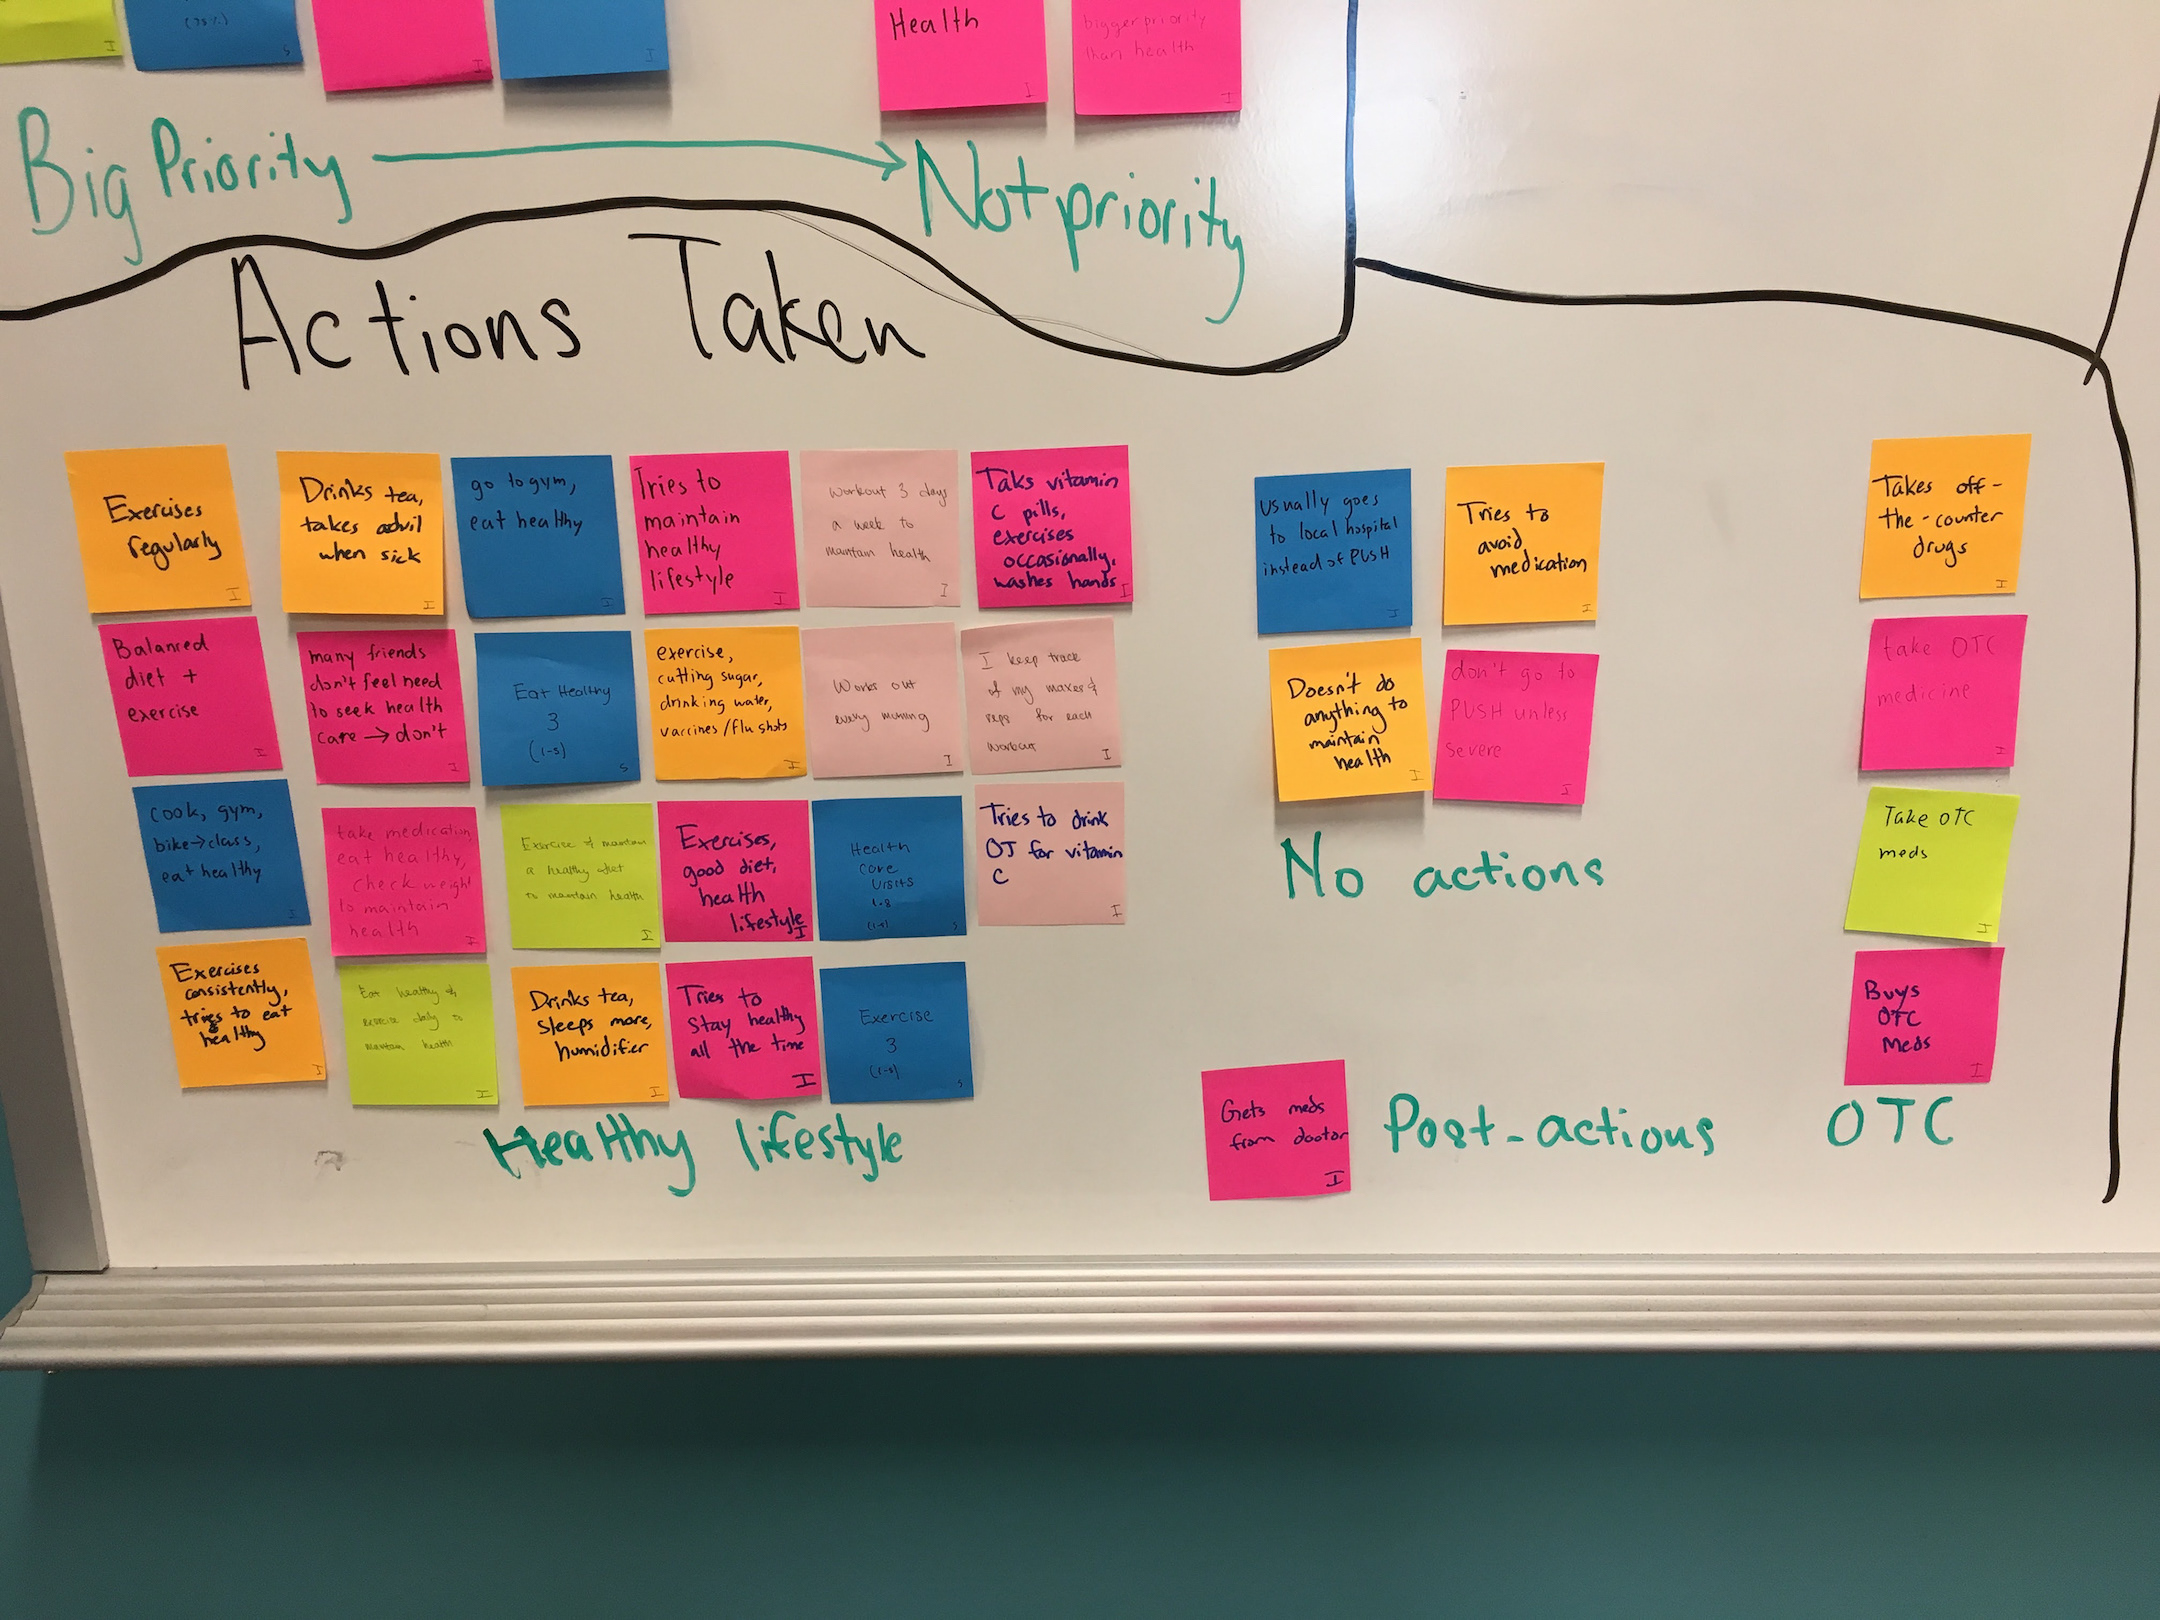 I
(75%)
S
I
I
Health
I
bigger priority
than health
I
Big Priority
Not priority
Actions Taken
Exercises
regularly
I
Drinks tea,
takes advil
when sick
I
go to gym,
eat healthy
I
Tries to
maintain
healthy
lifestyle
I
Workout 3 days
a week to
maintain health
I
Taks vitamin
C pills,
exercises
occasionally,
washes hands
I
Balanced
diet +
exercise
I
many friends
don't feel need
to seek health
care → don't
I
Eat Healthy
3
(1-5)
S
exercise,
cutting sugar,
drinking water,
vaccines/flu shots
I
Works out
every morning
I
I keep track
of my maxes &
reps for each
workout
I
cook, gym,
bike→class,
eat healthy
I
take medication,
eat healthy,
check weight
to maintain
health
I
Exercise & maintain
a healthy diet
to maintain health
I
Exercises,
good diet,
health
lifestyle
I
Health
care
visits
1.8
(1-5)
S
Tries to drink
OJ for vitamin
C
I
Exercises
consistently,
tries to eat
healthy
I
Eat healthy &
exercise daily to
maintain health
I
Drinks tea,
sleeps more,
humidifier
I
Tries to
stay healthy
all the time
I
Exercise
3
(1-5)
S
Healthy lifestyle
usually goes
to local hospital
instead of PUSH
I
Tries to
avoid
medication
I
Doesn't do
anything to
maintain
health
I
don't go to
PUSH unless
severe
I
No actions
Gets meds
from doctor
I
Post-actions
Takes off-
the-counter
drugs
I
take OTC
medicine
I
Take OTC
meds
I
Buys
OTC
Meds
I
OTC